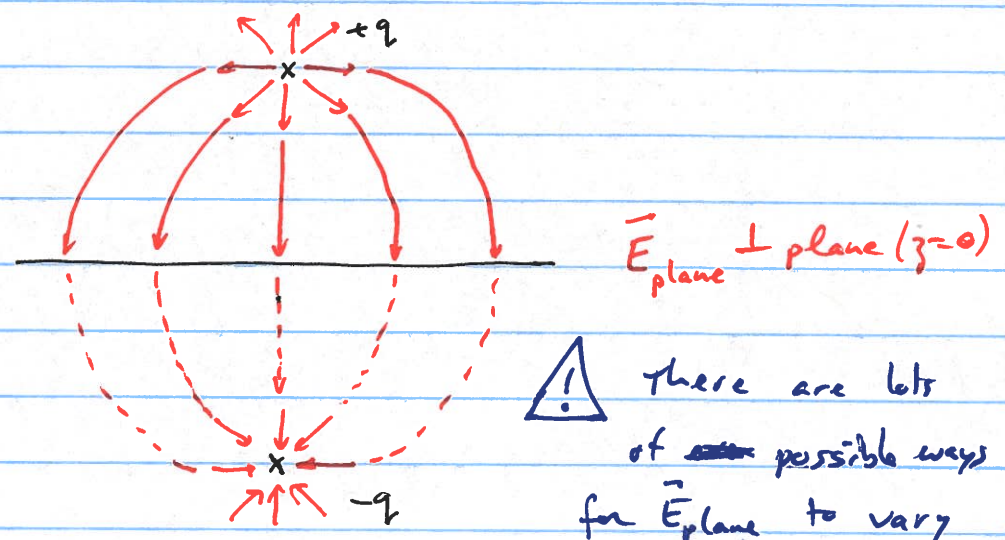 +q
E⃗ plane ⊥ plane (z=0)
! There are lots
of possible ways
for E⃗ plane to vary
-q